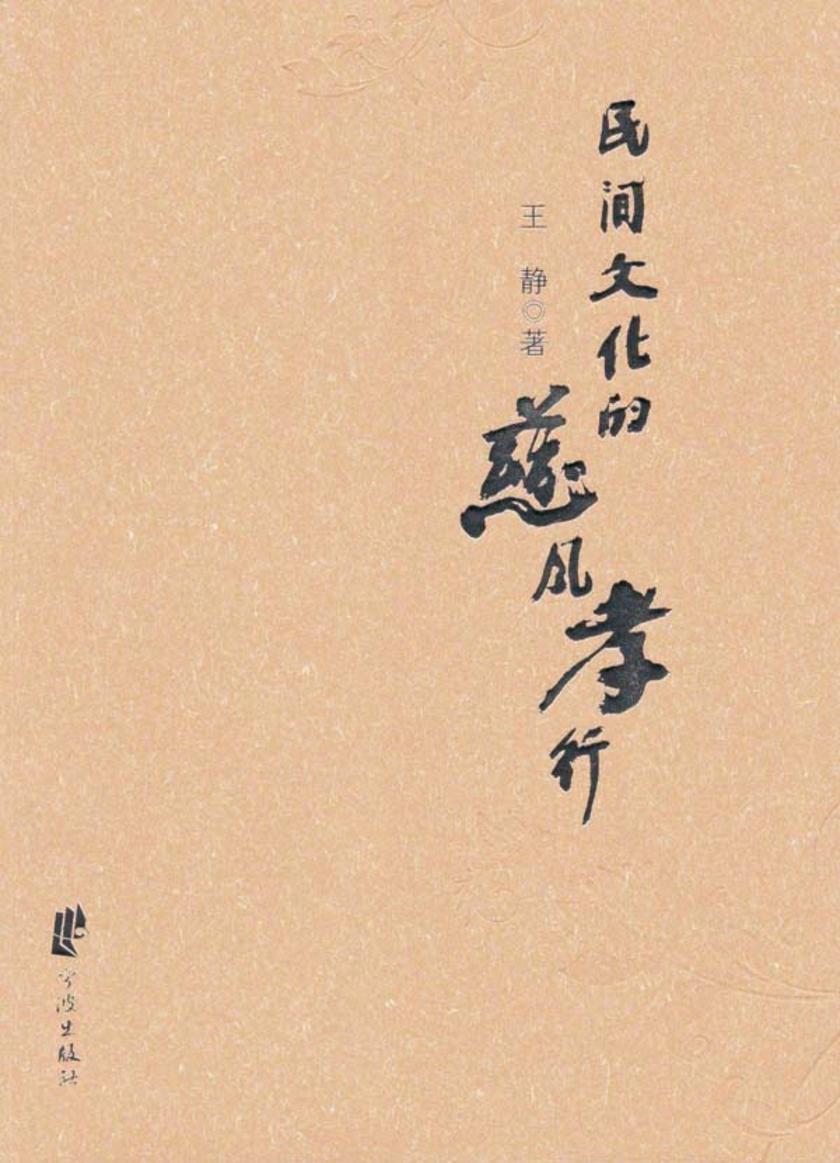 民间文化的
慈风孝行
王静◎著
宁波出版社